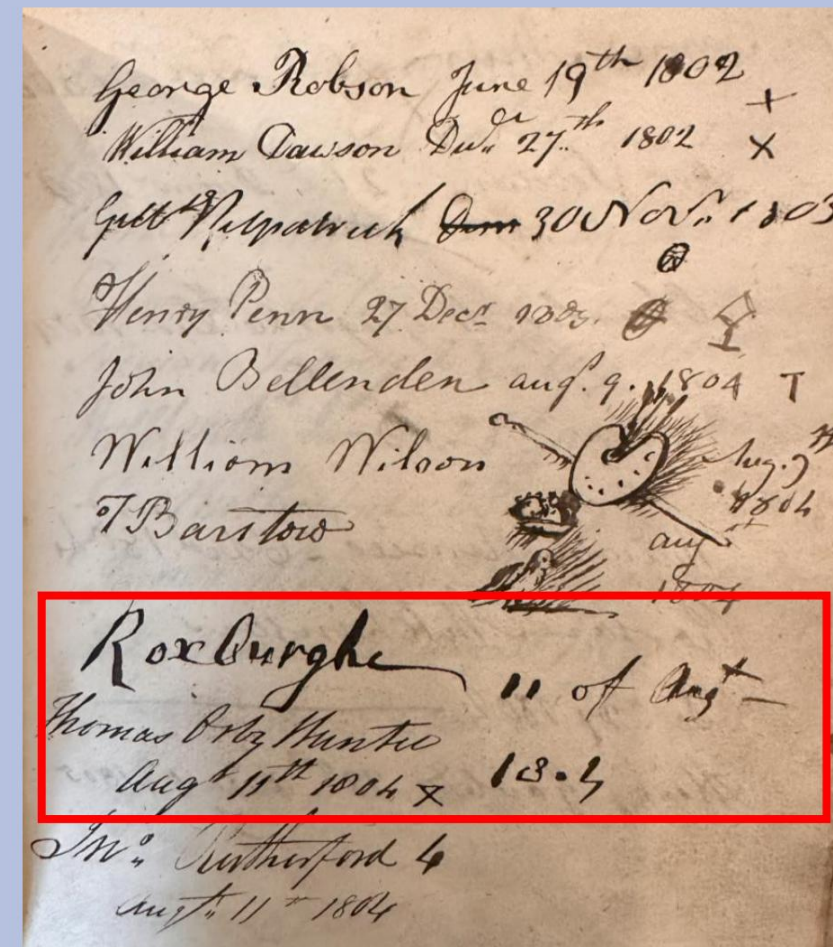 George Robson June 19th 1802 +
William Dawson Decr. 27th 1802 X
Kilpatrick 30 Nov. 1803
Henry Penn 27 Decr 1803.
John Bellenden augt. 9. 1804 T
William Wilson Aug. 9th 1804
T Barstow augst 1804
Roxburghe 11 of Augt 1804
Thomas Orby Hunter
Augt 11th 1804 X
Jno. Rutherford 4
Augt. 11th 1804